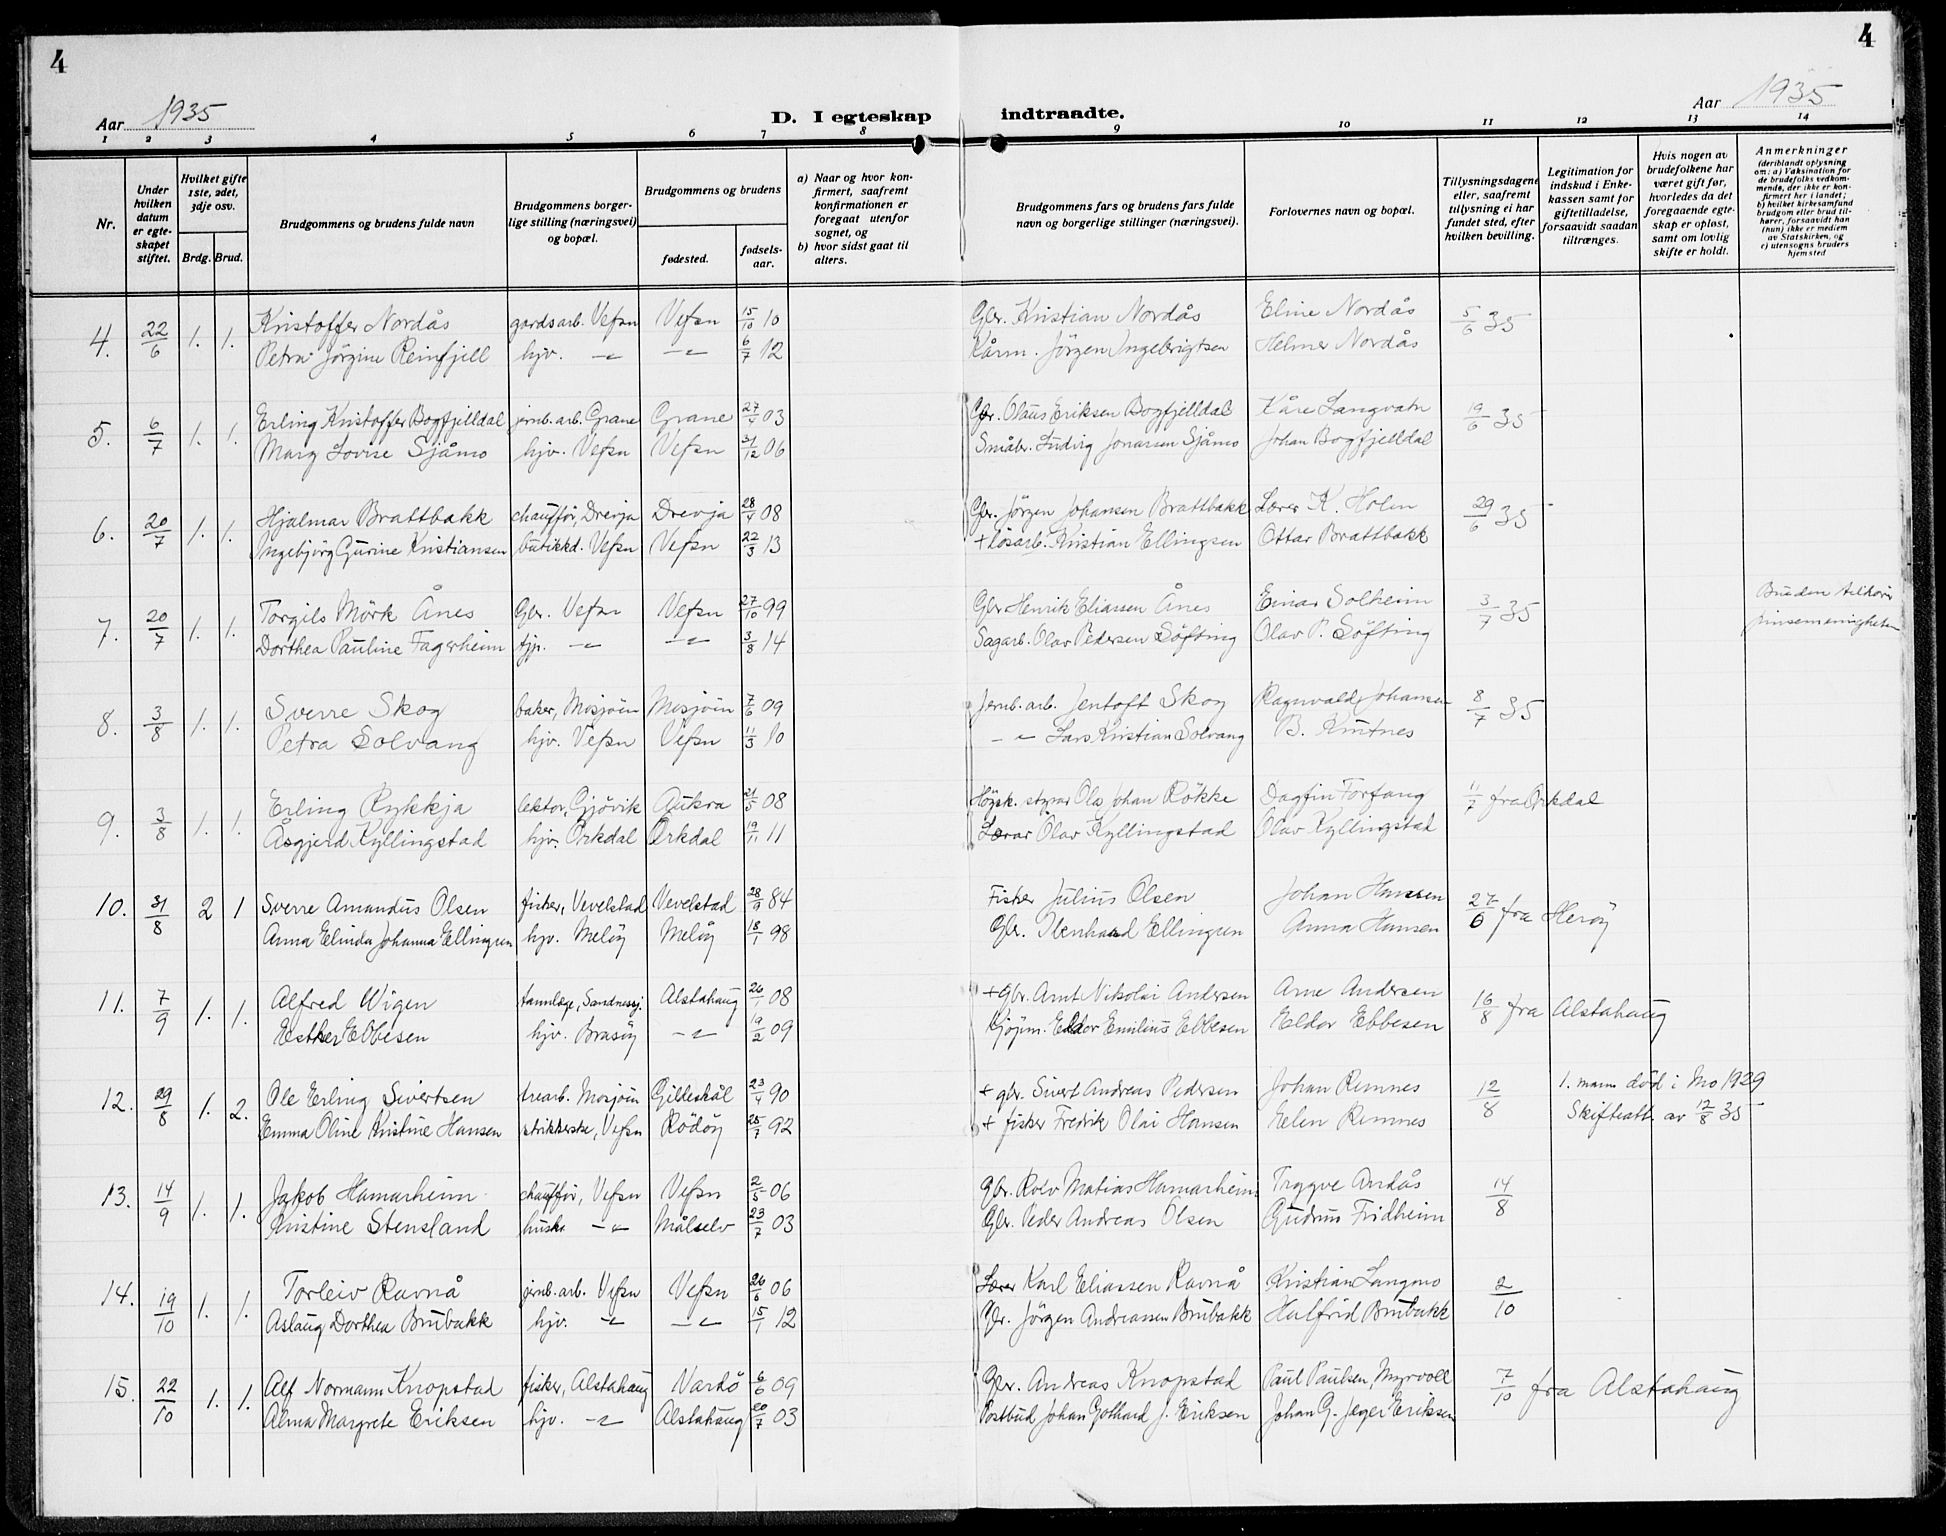 4
4
Aar 1935
D. I egteskap indtraadte.
Aar 1935
1 2 3 4 5 6 7 8 9 10 11 12 13 14
Nr.
Under hvilken datum er egteskapet stiftet.
Hvilket gifte 1ste, 2det, 3dje osv.
Brdg. Brud.
Brudgommens og brudens fulde navn
Brudgommens borgerlige stilling (næringsvei) og bopæl.
Brudgommens og brudens
fødested.
fødselsaar.
a) Naar og hvor konfirmert, saafremt konfirmationen er foregaat utenfor sognet, og
b) hvor sidst gaat til alters.
Brudgommens fars og brudens fars fulde navn og borgerlige stillinger (næringsvei).
Forlovernes navn og bopæl.
Tillysningsdagene eller, saafremt tillysning ei har fundet sted, efter hvilken bevilling.
Legitimation for indskud i Enkekassen samt for giftetilladelse, forsaavidt saadan tiltrænges.
Hvis nogen av brudefolkene har været gift før, hvorledes da det foregaaende egteskap er opløst, samt om lovlig skifte er holdt.
Anmerkninger
(deriblandt oplysning om: a) Vaksination for de brudefolks vedkommende, der ikke er konfirmert her i landet; b) hvilket kirkesamfund brudgom eller brud tilhører, forsaavidt han (hun) ikke er medlem av Statskirken, og c) utensogns bruders hjemsted
4. 22/6 1. 1. Kristoffer Nordås gardsarb. Vefsn Vefsn 15/10 10 Gbr. Kristian Nordås Eline Nordås 5/6 35
Petra Jörgine Reinfjell hjv. -"- -"- 6/7 12 Kårm. Jörgen Ingebrigtsen Helmer Nordås
5. 6/7 1. 1. Erling Kristoffer Bogfjelldal jernb.arb. Grane Grane 27/4 03 Gbr. Olaus Eriksen Bogfjelldal Kåre Langvatn 19/6 35
Mary Lovise Sjåmo hjv. Vefsn Vefsn 31/12 06 Småbr. Ludvig Jonassen Sjåmo Johan Bogfjelldal
6. 20/7 1. 1. Hjalmar Brattbakk chaufför, Drevja Drevja 28/4 08 Gbr. Jörgen Johansen Brattbakk Lærer K. Holm 29/6 35
Ingebjörg Gurine Kristiansen butikkd. Vefsn Vefsn 22/3 13 + lösarb. Kristian Ellingsen Ottar Brattbakk
7. 20/7 1. 1. Torgils Mörk Ånes Gbr. Vefsn Vefsn 27/10 99 Gbr Henrik Eliassen Ånes Einar Solheim 3/7 35 Bruden tilhörer
Dorthea Pauline Fagerheim tjp. -"- -"- 3/8 14 Sagarb. Olav Pedersen Söfting Olav P. Söfting pinsemenigheten
8. 3/8 1. 1. Sverre Skog baker, Mosjöen Mosjöen 7/6 09 Jernb. arb. Jentoft Skog Ragnvald Johansen 8/7 35
Petra Solvang hjv. Vefsn Vefsn 11/3 10 -"- Lars Kristian Solvang B. Kuitnes
9. 3/8 1. 1. Erling Rykkja lektor, Gjövik Aukra 21/5 08 Högsk. styrar Ola Johan Rökke Dagfin Forfang 11/7 fra Orkdal
Åsgjerd Kyllingstad hjv. Orkdal Orkdal 19/11 11 Lærar Olav Kyllingstad Olav Kyllingstad
10. 31/8 2 1 Sverre Amandus Olsen fisker, Vevelstad Vevelstad 28/9 84 Fisker Julius Olsen Johan Hansen 27/6 fra Heröy
Anna Elinda Johanna Ellingsen hjv. Melöy Melöy 18/1 98 Gbr. Ellingsen Anna Hansen
11. 7/9 1. 1. Alfred Wigen tannlæge, Sandnessj. Alstahaug 26/1 08 + gbr. Arnt Nikolai Andersen Arne Andersen 16/8 fra Alstahaug
Esther Ebbesen hjv. Brasöy -"- 19/2 09 Kjöpm. Eldor Emilius Ebbesen Eldor Ebbesen
12. 29/8 1. 2. Ole Erling Sivertsen trearb. Mosjöen Gildeskål 23/4 90 + gbr. Sivert Andreas Pedersen Johan Remnes 12/8 1. mann död i Mo 1929
Emma Oline Kristine Hansen strikkerske, Vefsn Rödöy 25/7 92 + fisker Fredrik Olai Hansen Helen Remnes Skifteatt. av 12/8 35
13. 14/9 1. 1. Jakob Hamarheim chaufför, Vefsn Vefsn 2/5 06 Gbr. Rolv Matias Hamarheim Trygve Andås 14/8
Kristine Stensland huskr -"- Målselv 23/7 03 Gbr. Peder Andreas Olsen Gudrun Fridheim
14. 19/10 1. 1. Torleiv Ravnå jernb.arb. Vefsn Vefsn 26/6 06 Lærer Karl Eliassen Ravnå Kristian Langmo 2/10
Aslaug Dorthea Brubakk hjv. -"- -"- 15/1 12 Gbr. Jörgen Andreassen Brubakk Halfrid Brubakk
15. 22/10 1. 1. Alf Normann Knopstad fisker, Alstahaug Vardö 6/6 09 Gbr. Andreas Knopstad Paul Paulsen, Myrvoll 7/10 fra Alstahaug
Alma Margrete Eriksen hjv. -"- Alstahaug 20/7 03 Postbud Johan Gothard J. Eriksen Johan G. Jæger Eriksen